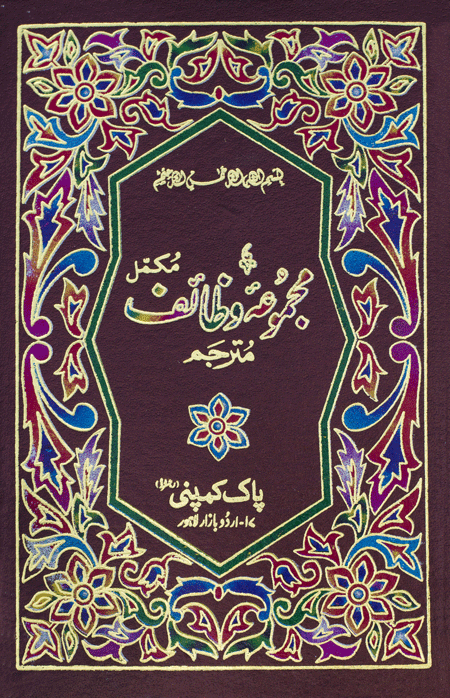 بسم اللہ الرحمٰن الرحیم
مکمّل
مجموعۂ وظائف
مُترجم
پاک کمپنی (رجسٹرڈ)
۱۷-اردو بازار لاہور